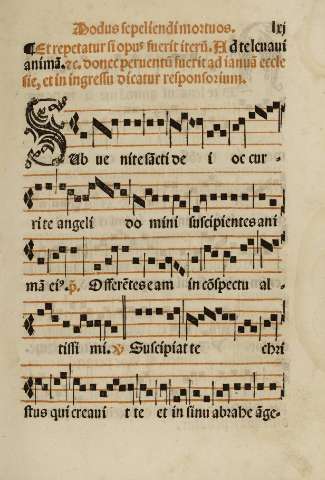 Modus sepeliendi mortuos. lxj
¶Et repetatur si opus fuerit iterū. Ad te leuaui
animā. ꝛc. donec peruentū fuerit ad ianuā eccle
sie, et in ingressu dicatur responsorium.
Sub ue nite sācti de i oc cur-
rite angeli do mini suscipientes ani
mā eiꝰ. p̄. Offerētes eam in cōspectu al-
tissi mi. ℣ Suscipiat te chri
stus qui creaui t te et in sinu abrahe āge-